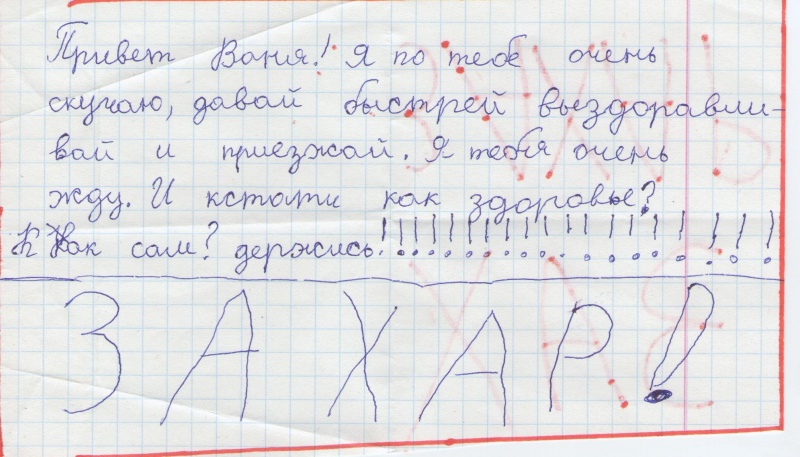 Привет Ваня! Я по тебе очень
скучаю, давай быстрей выздоравли-
вай и приезжай. Я тебя очень
жду. И кстати как здоровье?
Как сам? держись!!!!!!!!!!!!!!!!!!!!
ЗАХАР!